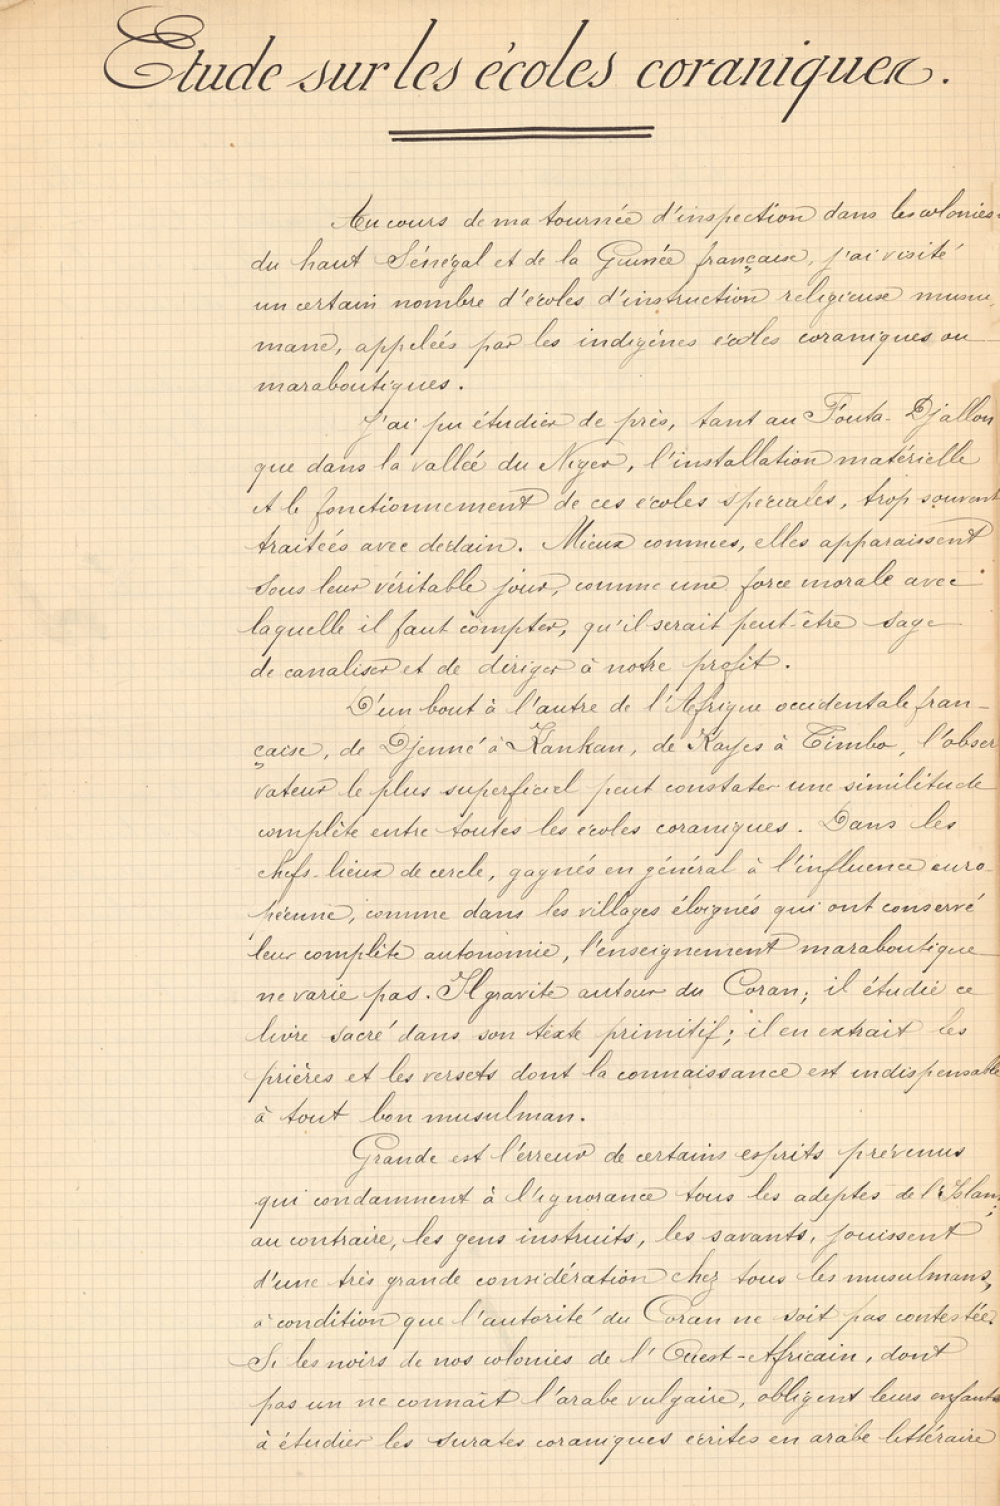 Etude sur les écoles coraniques.
Au cours de ma tournée d'inspection dans les colonies
du haut Sénégal et de la Guinée française, j'ai visité
un certain nombre d'écoles d'instruction religieuse musul-
mane, appelées par les indigènes écoles coraniques ou
maraboutiques.
J'ai pu étudier de près, tant au Fouta-Djallon
que dans la vallée du Niger, l'installation matérielle
et le fonctionnement de ces écoles spéciales, trop souvent
traitées avec dédain. Mieux connues, elles apparaissent
sous leur véritable jour, comme une force morale avec
laquelle il faut compter, qu'il serait peut-être sage
de canaliser et de diriger à notre profit.
D'un bout à l'autre de l'Afrique occidentale fran-
çaise, de Djenné à Kankan, de Kayes à Timbo, l'obser
vateur le plus superficiel peut constater une similitude
complète entre toutes les écoles coraniques. Dans les
chefs-lieux de cercle, gagnés en général à l'influence euro-
péenne, comme dans les villages éloignés qui ont conservé
leur complète autonomie, l'enseignement maraboutique
ne varie pas. Il gravite autour du Coran; il étudie ce
livre sacré dans son texte primitif; il en extrait les
prières et les versets dont la connaissance est indispensable
à tout bon musulman.
Grande est l'erreur de certains esprits prévenus
qui condamnent à l'ignorance tous les adeptes de l'Islam;
au contraire, les gens instruits, les savants, jouissent
d'une très grande considération chez tous les musulmans,
à condition que l'autorité du Coran ne soit pas contestée.
Si les noirs de nos colonies de l'Ouest-Africain, dont
pas un ne connaît l'arabe vulgaire, obligent leurs enfants
à étudier les surates coraniques écrites en arabe littéraire